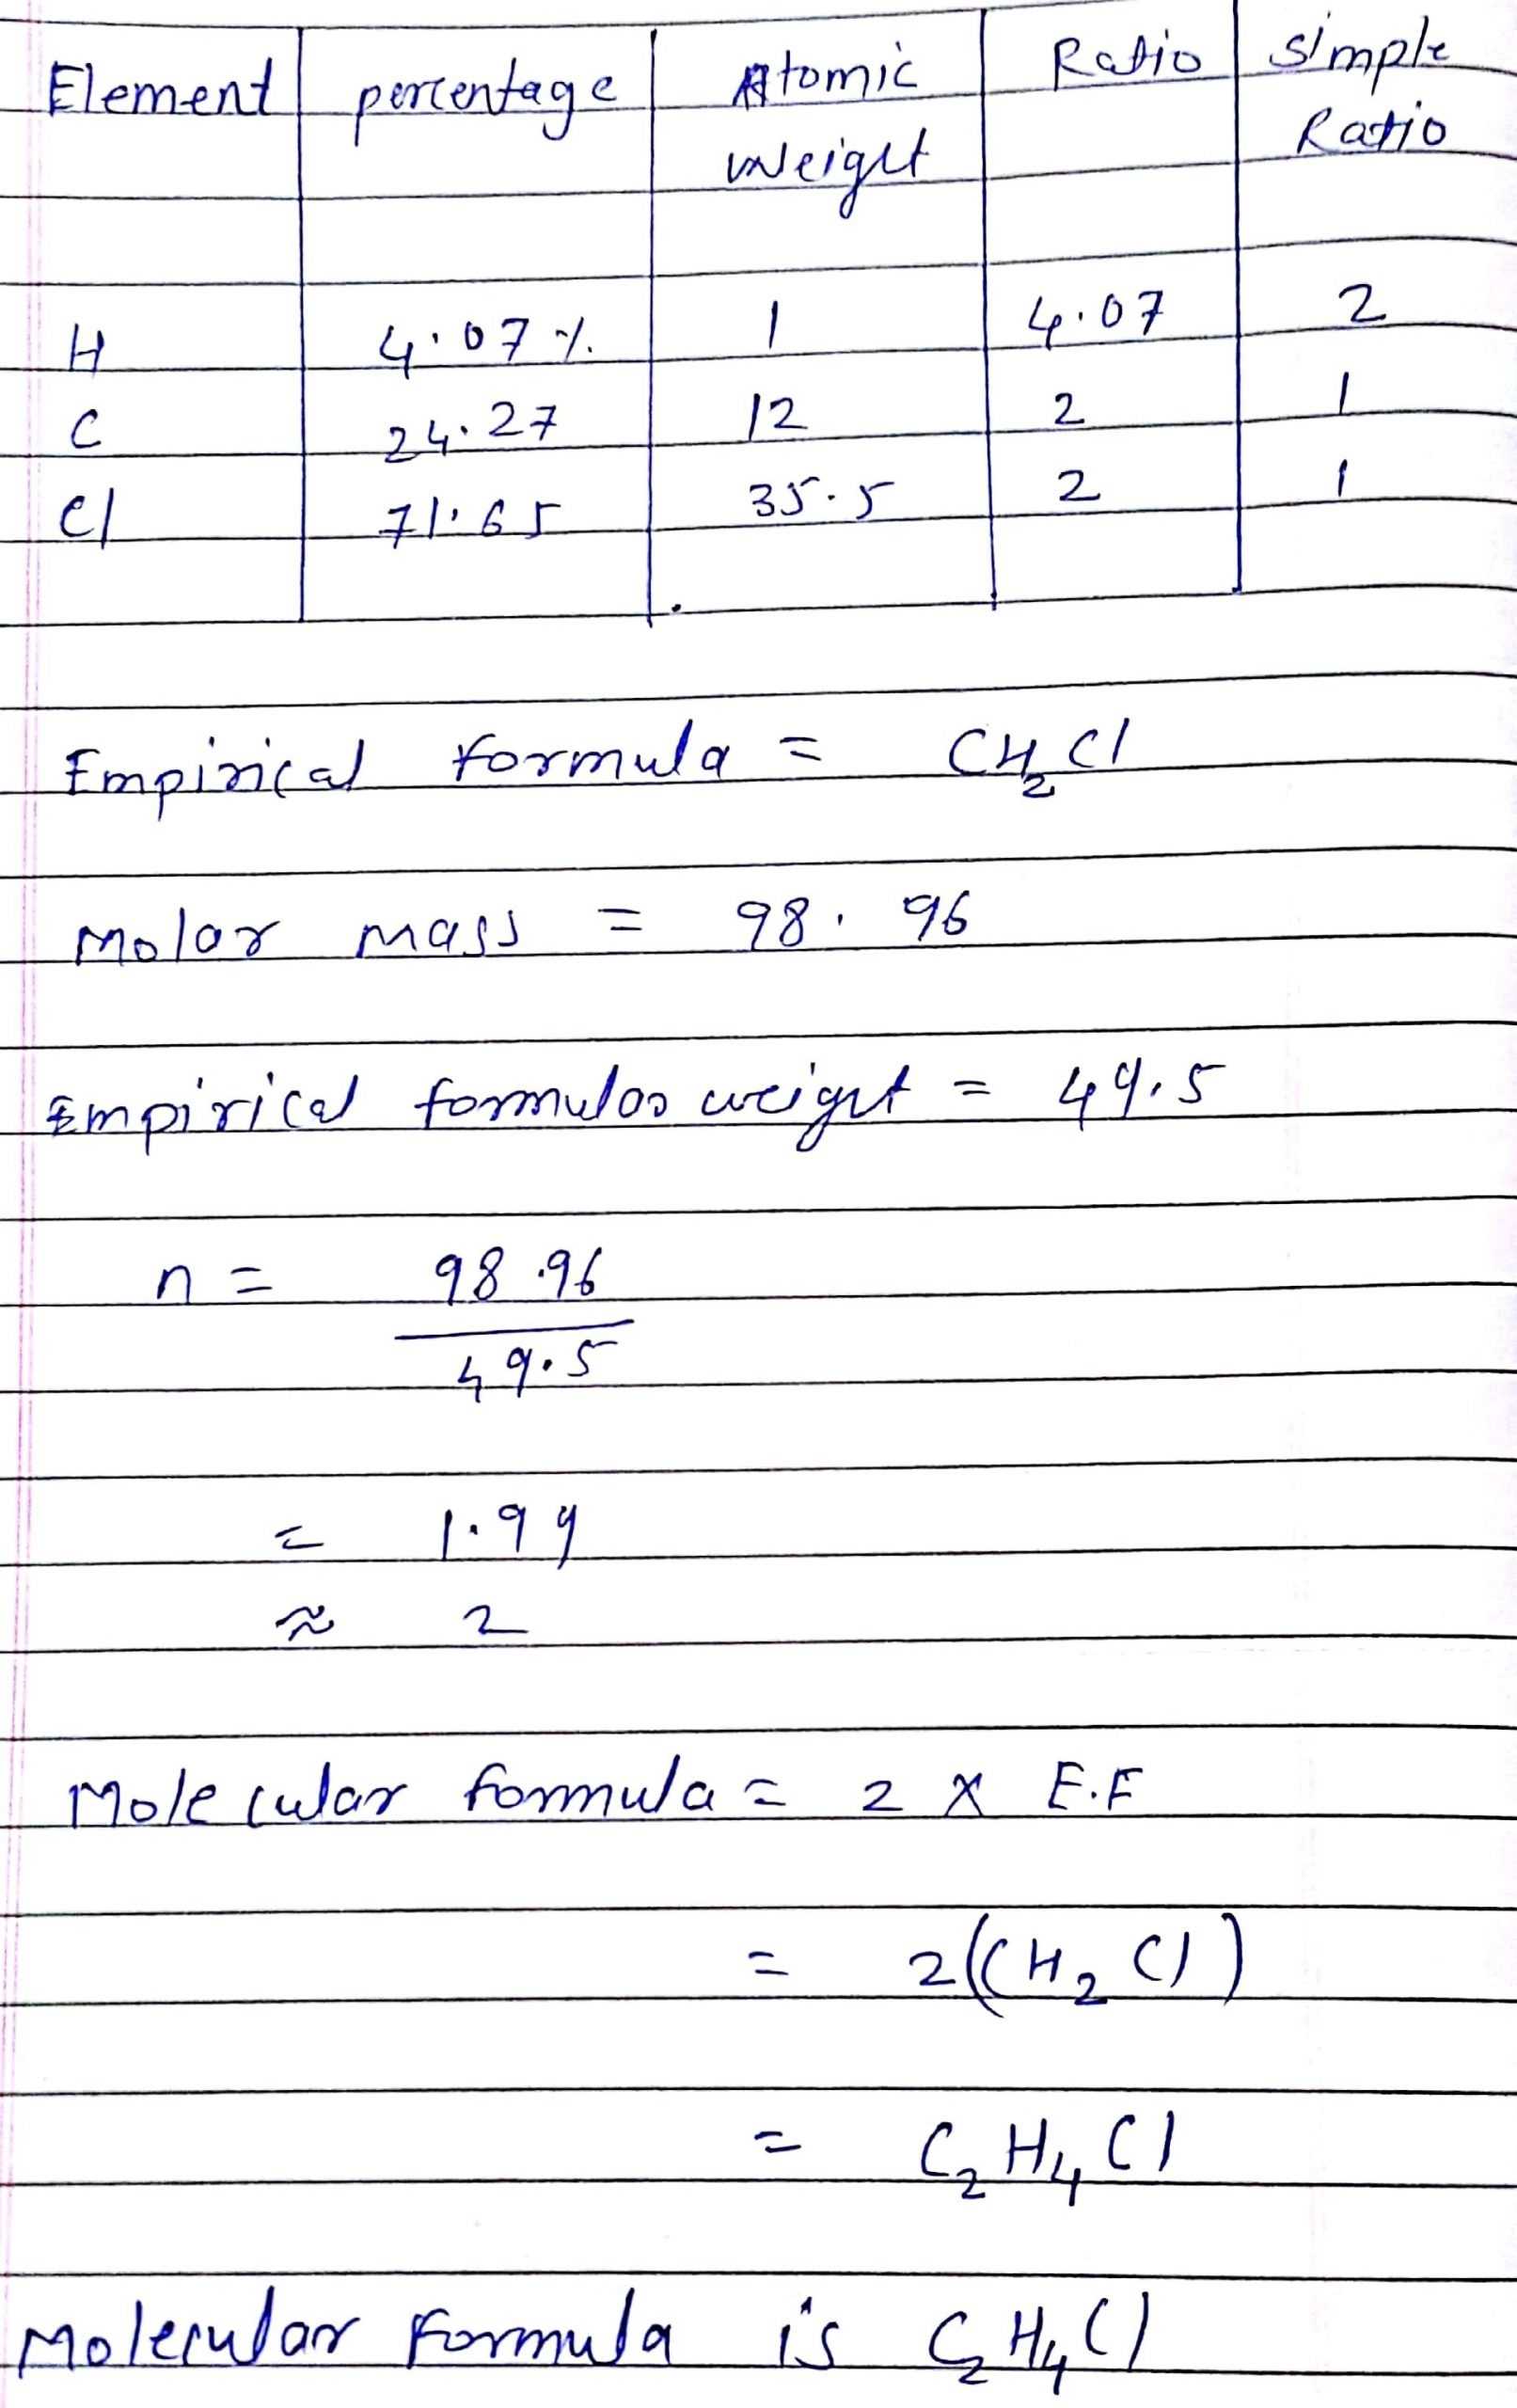 Element percentage Atomic Weight Ratio Simple Ratio
H 4.07 % 1 4.07 2
C 24.27 12 2 1
Cl 71.65 35.5 2 1
Empirical formula = CH₂Cl
Molar mass = 98.96
Empirical formulas weight = 49.5
n = 98.96
49.5
= 1.99
≈ 2
Molecular formula = 2 x E.F
= 2(CH₂Cl)
= C₂H₄Cl
Molecular Formula is C₂H₄Cl